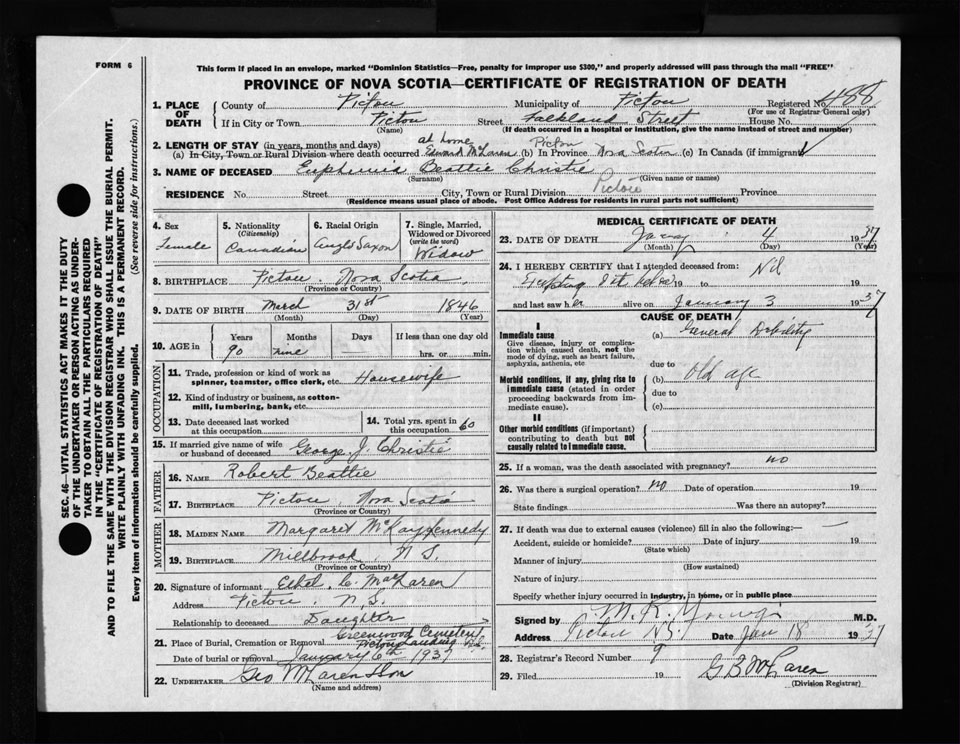 FORM 6
This form if placed in an envelope, marked "Dominion Statistics—Free, penalty for improper use $300," and properly addressed will pass through the mail "FREE"
PROVINCE OF NOVA SCOTIA—CERTIFICATE OF REGISTRATION OF DEATH
SEC. 46—VITAL STATISTICS ACT MAKES IT THE DUTY
OF THE UNDERTAKER OR PERSON ACTING AS UNDER-
TAKER TO OBTAIN ALL THE PARTICULARS REQUIRED
IN THE "CERTIFICATE OF REGISTRATION OF DEATH"
AND TO FILE THE SAME WITH THE DIVISION REGISTRAR WHO SHALL ISSUE THE BURIAL PERMIT.
WRITE PLAINLY WITH UNFADING INK. THIS IS A PERMANENT RECORD.
Every item of information should be carefully supplied. (See reverse side for instructions.)
1. PLACE OF DEATH
County of Pictou Municipality of Pictou Registered No. 488
(For use of Registrar General only)
If in City or Town Pictou Street Falkland Street House No.
(Name) (If death occurred in a hospital or institution, give the name instead of street and number)
2. LENGTH OF STAY (in years, months and days) at home Pictou
(a) In City, Town or Rural Division where death occurred Edward McLaren (b) In Province Nova Scotia (c) In Canada (if immigrant)
3. NAME OF DECEASED Euphemia Beattie Christie
(Surname) (Given name or names)
RESIDENCE No. Street City, Town or Rural Division Pictou Province
(Residence means usual place of abode. Post Office Address for residents in rural parts not sufficient)
4. Sex Female
5. Nationality (Citizenship) Canadian
6. Racial Origin Anglo Saxon
7. Single, Married, Widowed or Divorced (write the word) Widow
8. BIRTHPLACE Pictou, Nova Scotia
(Province or Country)
9. DATE OF BIRTH March 31st 1846
(Month) (Day) (Year)
10. AGE Years 90 Months nine Days If less than one day old hrs. or min.
OCCUPATION
11. Trade, profession or kind of work as
spinner, teamster, office clerk, etc. Housewife
12. Kind of industry or business, as cotton-
mill, lumbering, bank, etc.
13. Date deceased last worked
at this occupation
14. Total yrs. spent in
this occupation 60
15. If married give name of wife
or husband of deceased George J. Christie
FATHER
16. NAME Robert Beattie
17. BIRTHPLACE Pictou, Nova Scotia
(Province or Country)
MOTHER
18. MAIDEN NAME Margaret McKay Kennedy
19. BIRTHPLACE Millbrook, N.S.
(Province or Country)
20. Signature of informant Ethel C. MacLaren
Address Pictou, N.S.
Relationship to deceased Daughter
21. Place of Burial, Cremation or Removal Greenwood Cemetery
Pictou Landing Rd.
Date of burial or removal January 6th 1937
22. UNDERTAKER Geo McLaren & Son
(Name and address)
MEDICAL CERTIFICATE OF DEATH
23. DATE OF DEATH 4 1937
(Month) (Day) (Year)
24. I HEREBY CERTIFY that I attended deceased from: Nil
19 to 19
and last saw her alive on January 3 1937
CAUSE OF DEATH
I
Immediate cause
Give disease, injury or complica-
tion which caused death, not the
mode of dying, such as heart failure,
asphyxia, asthenia, etc
(a) General Debility
due to
Morbid conditions, if any, giving rise to
immediate cause (stated in order
proceeding backwards from im-
mediate cause).
(b) Old age
due to
(c)
II
Other morbid conditions (if important)
contributing to death but not
causally related to immediate cause.
25. If a woman, was the death associated with pregnancy? no
26. Was there a surgical operation? no Date of operation 19
State findings Was there an autopsy?
27. If death was due to external causes (violence) fill in also the following:—
Accident, suicide or homicide? Date of injury 19
(State which)
Manner of injury
(How sustained)
Nature of injury
Specify whether injury occurred in industry, in home, or in public place
Signed by M.D.
Address Pictou N.S. Date Jan 18 1937
28. Registrar's Record Number 9
29. Filed 19 G B McLaren
(Division Registrar)